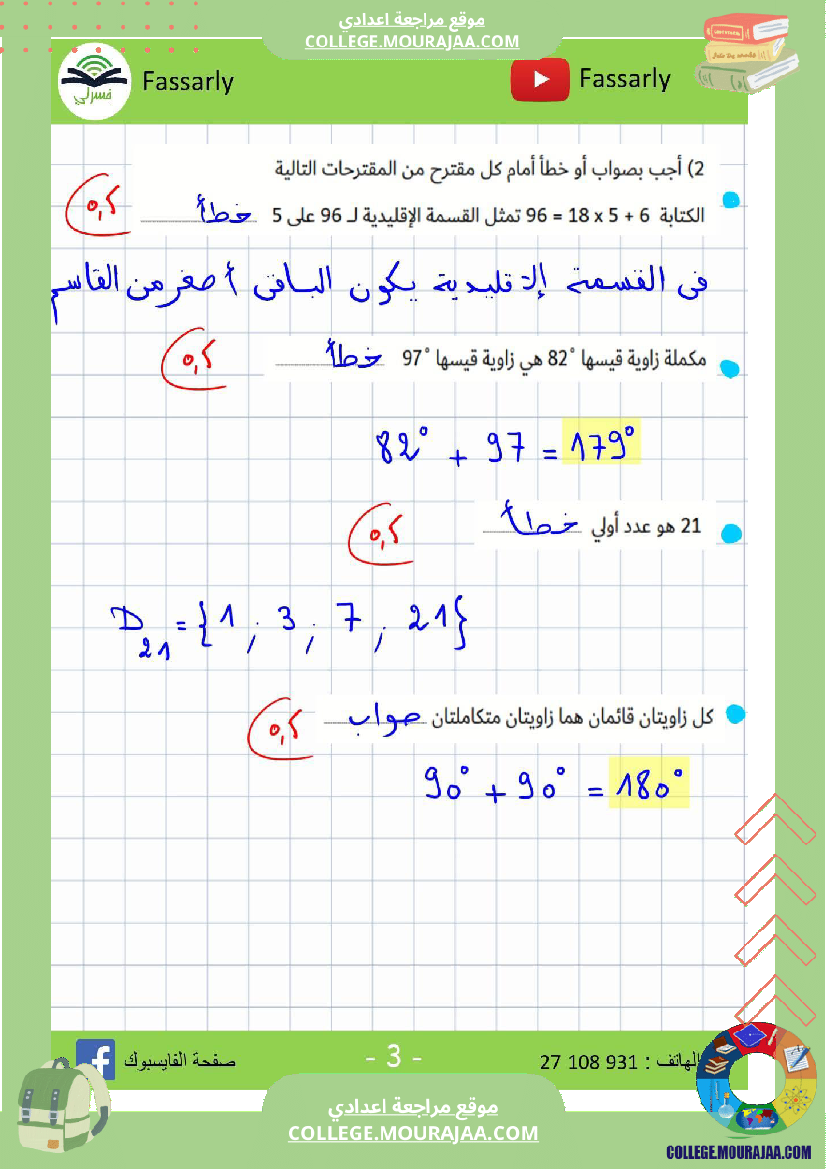 موقع مراجعة اعدادي
COLLEGE.MOURAJAA.COM
فسرلي
Fassarly
Fassarly
2) أجب بصواب أو خطأ أمام كل مقترح من المقترحات التالية
الكتابة 96 = 18 x 5 + 6 تمثل القسمة الإقليدية لـ 96 على 5 خطأ
0,5
في القسمة الإقليدية يكون الباقي أصغر من القاسم
مكملة زاوية قيسها 82° هي زاوية قيسها 97° خطأ
0,5
82° + 97 = 179°
21 هو عدد أولي خطأ
0,5
D21 = {1 ; 3 ; 7 ; 21}
كل زاويتان قائمان هما زاويتان متكاملتان صواب
0,5
90° + 90° = 180°
صفحة الفايسبوك
- 3 -
الهاتف : 27 108 931
موقع مراجعة اعدادي
COLLEGE.MOURAJAA.COM
COLLEGE.MOURAJAA.COM